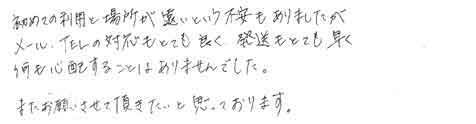 初めての利用と場所が遠いという不安もありましたが
メール、TELの対応もとても良く、発送もとても早く
何も心配することはありませんでした。
またお願いさせて頂きたいと思っております。